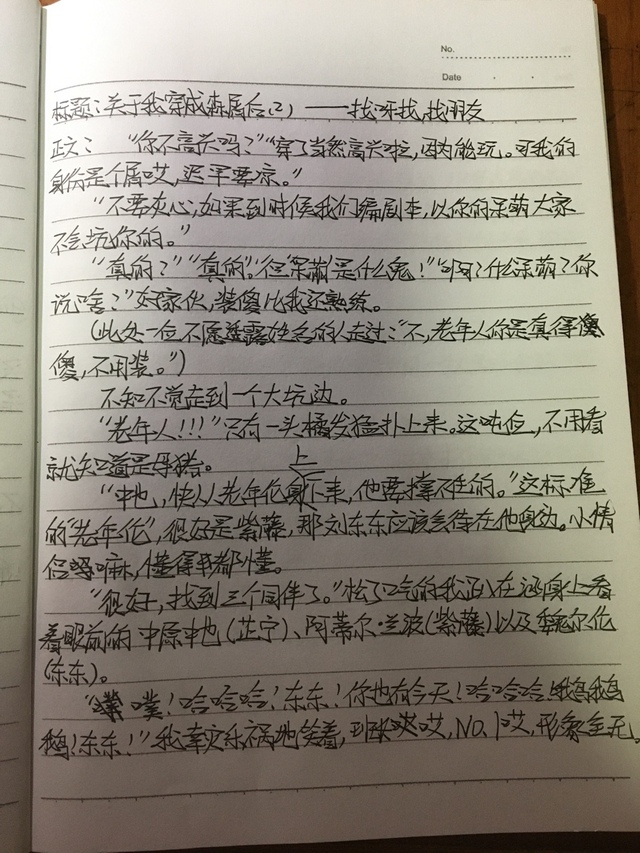 No.
Date
标题:关于我穿成森属后(2)——找呀找,找朋友
正文:“你不高兴吗?”“穿了当然高兴啦,因为能玩。可我的
身份是个属哎,迟早要凉。”
“不要灰心,如果到时候我们编剧本,以你的呆萌大家
不会坑你的。”
“真的?”“真的。”“但‘呆萌’是什么鬼!”“啊?什么呆萌?你
说啥?”好家伙,装傻比我还熟练。
(此处一位不愿透露姓名的人走过:“不,老年人你是真得
傻,不用装。”)
不知不觉走到一个大坑边。
“老年人!!!”只有一头橘发猛扑上来。这吨位,不用看
就知道是母猪。
“中也,快从老年伦身上下来,他要撑不住的。”这标准
的“老年伦”,很好是紫藤,那刘东东应该会待在他身边。小情
侣嘛,懂得都懂。
“很好,找到三个同伴了。”松了口气的我趴在泥身上看
着眼前的中原中也(芷宁)、阿蒂尔·兰波(紫藤)以及魏尔伦
(东东)。
“噗!哈哈哈!东东!你也有今天!哈哈哈!鹅鹅鹅
鹅!东东!”我幸灾乐祸地笑着,班哎,NO.1哎,形象全无。